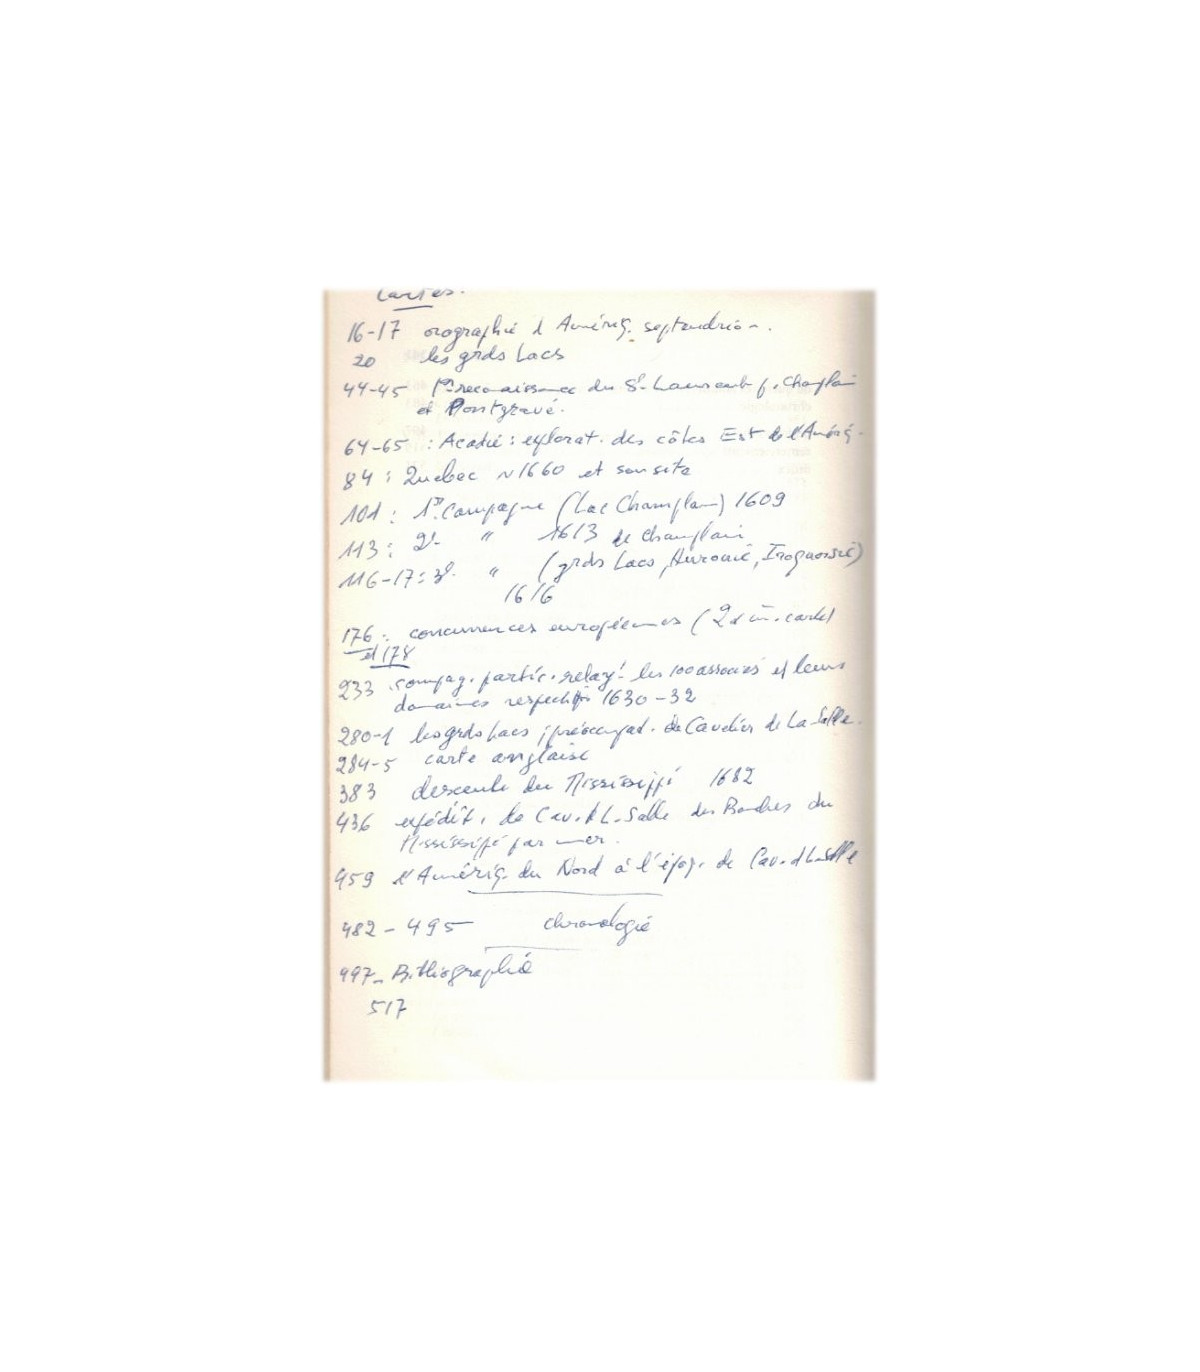 Cartes.
16-17 orographie d'Amériq. septendrion.
20 les grds Lacs
44-45 1re reconnaissance du St Laurent p. Champlain
et Pontgravé.
64-65 : Acadie : explorat. des côtes Est de l'Amériq.
84 : Quebec ~ 1660 et son site
101 : 1re Campagne (Lac Champlain) 1609
113 : 2e " 1613 de Champlain
116-17 : 3e " (grds Lacs, Huronie, Iroquoisie)
1616
176 : concurrences européennes (2
et 178
233 compag. partic. relay les 100 associés et leurs
domaines respectifs 1630-32
280-1 les grds Lacs ; préoccupat. de Cavelier de La Salle.
284-5 carte anglaise
383 descente du Mississippi 1682
436 expédit. de Cav. d L. Salle des Bouches du
Mississipi par mer.
459 l'Amériq. du Nord à l'époq. de Cav. d LaSalle
482 - 495 chronologie
497- Bibliographie
517